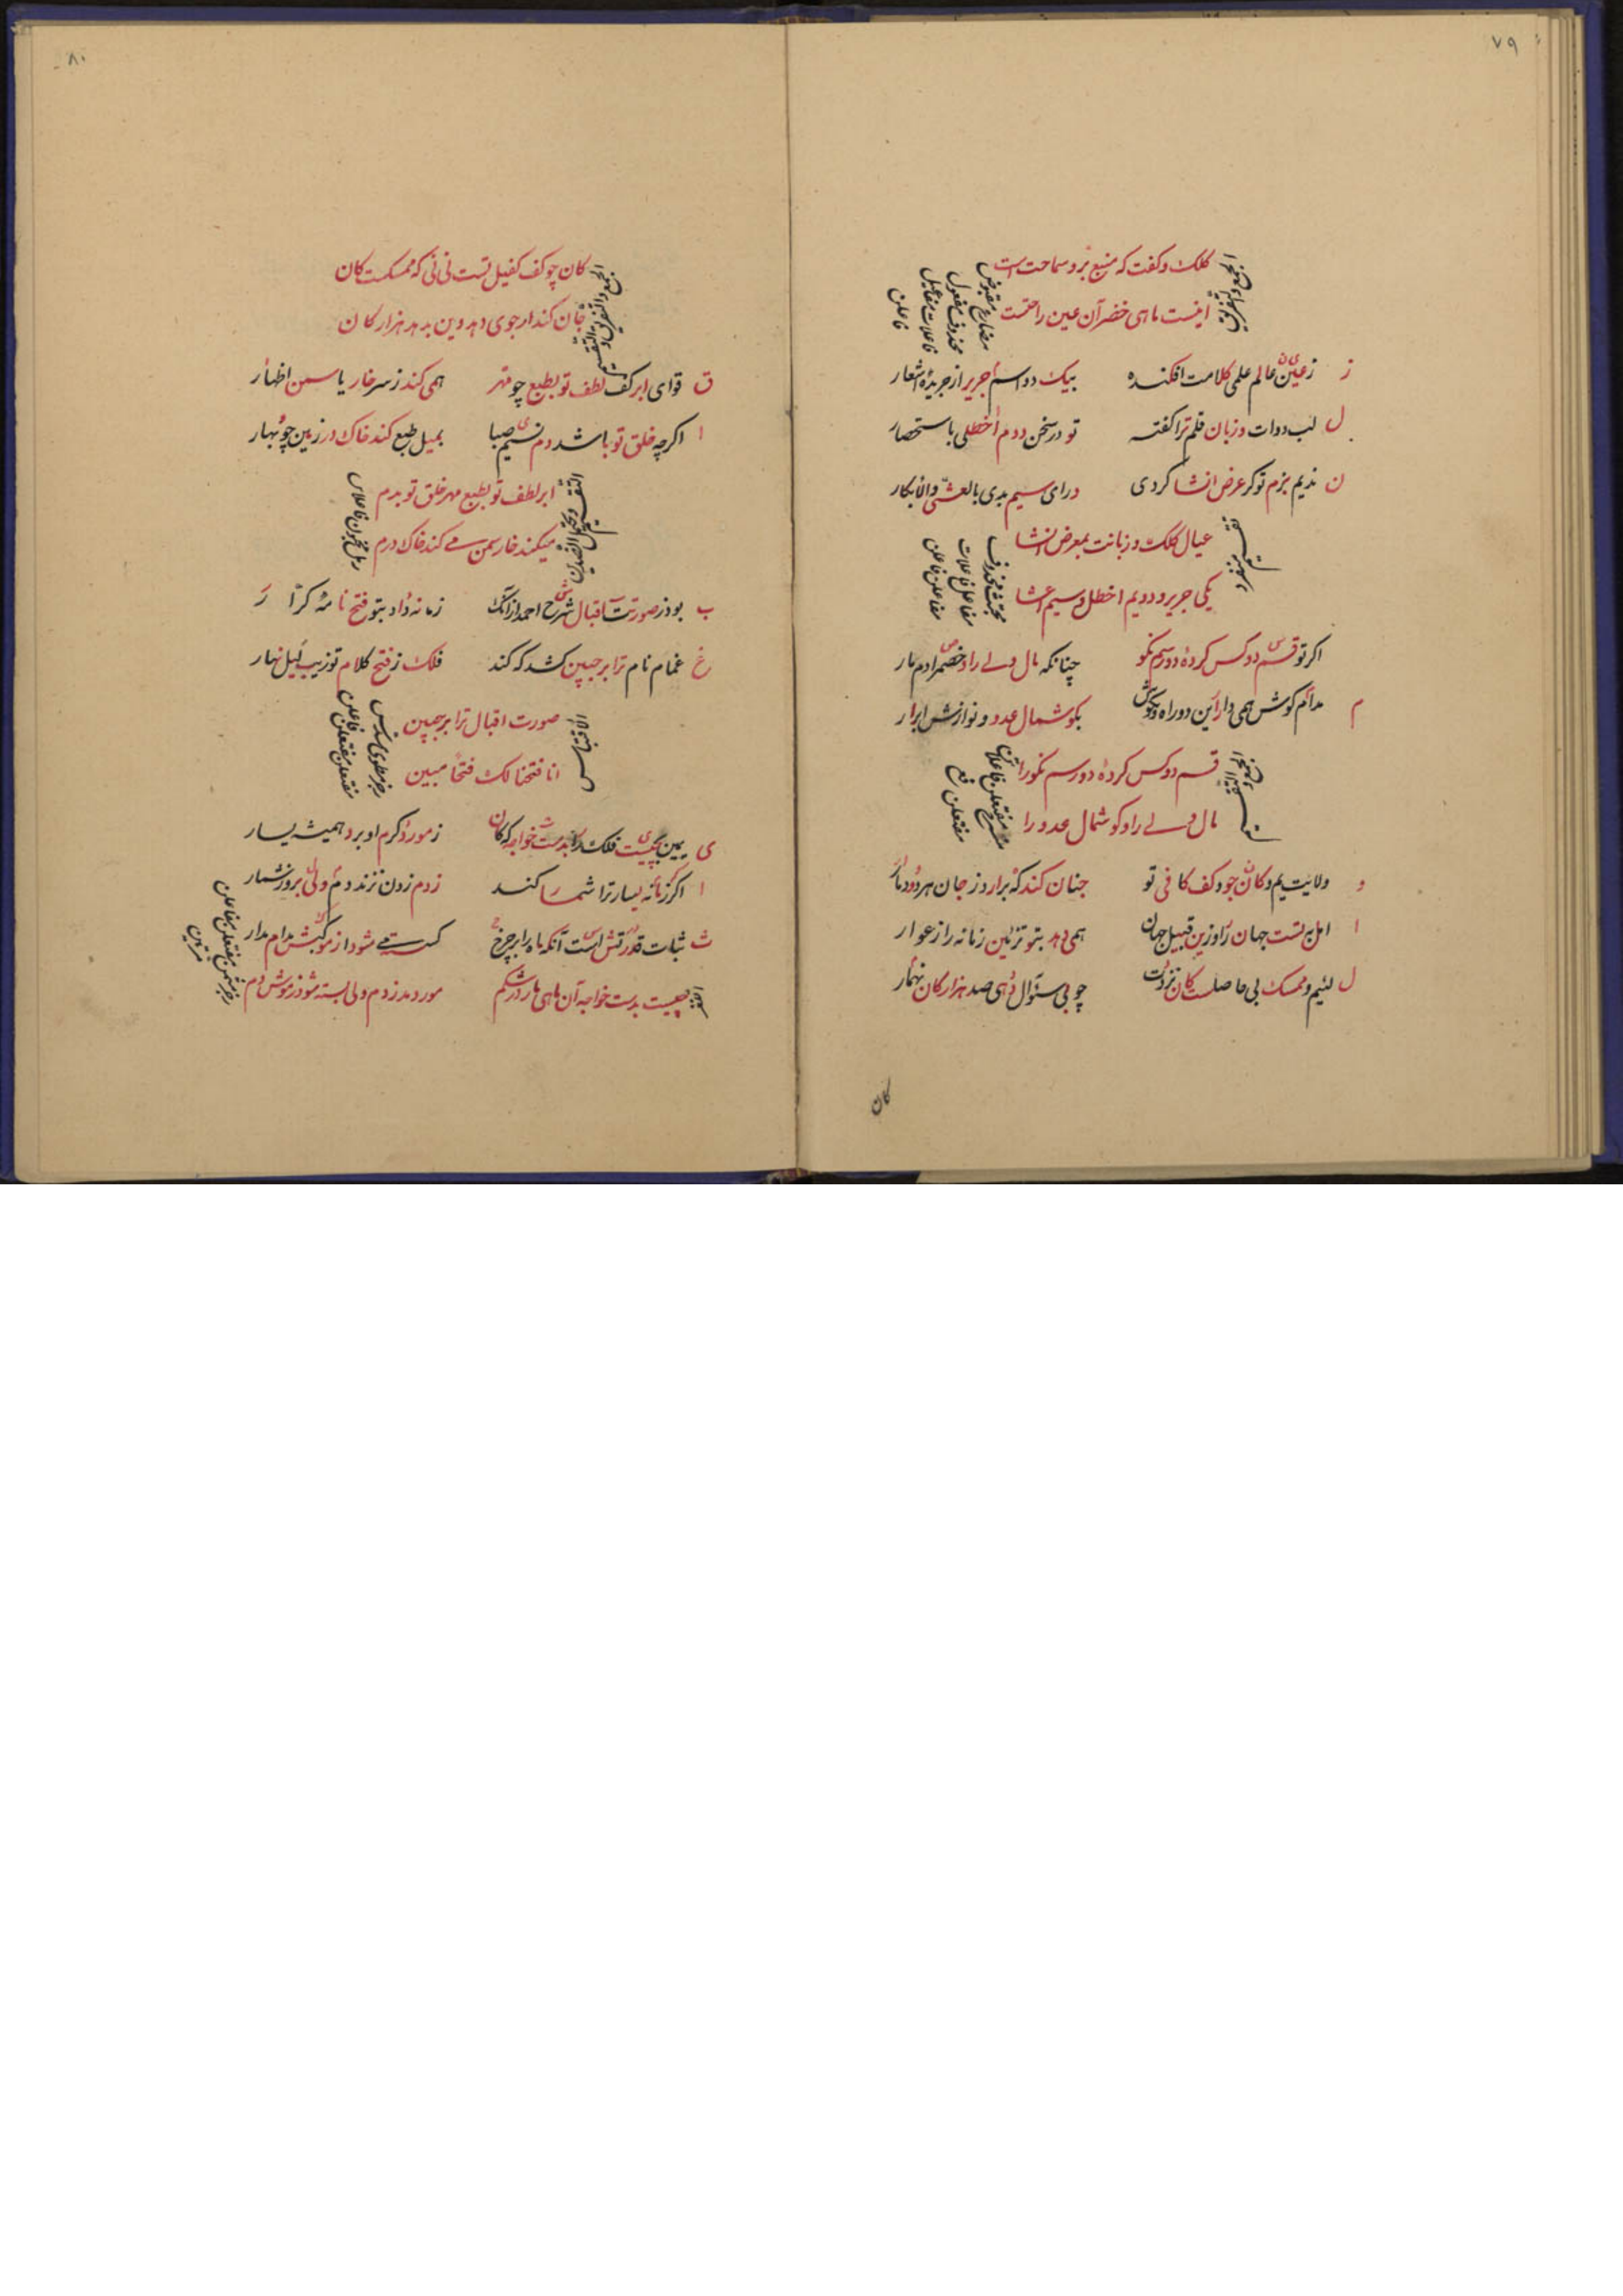 ٧٩
کلک و کفت که منبع بر و سماحت است
اینست ماهی خضر آن عین راحمت
مضارع مقبوض
محذوف مفعول
فاعلات مفاعیل
فاعلن
ز زعین عالم علمی کلامت افکنده بیک دو اسم جریر از جریدهٔ اشعار
ل لب دوات و زبان قلم ترا کفته تو در سخن دوم اخطلی باستحصار
ن ندیم بزم تو کر عرض انشا کردی درای سیم بدی بالعشی والابکار
عیال کلک و زبانت بمعرض انشا
یکی جریر و دویم اخطل و سیم اعشا
مجتث محذوف
مفاعلن فاعلات
مفاعلن فاعلن
اکر تو قسم دو کس کردهٔ دو رسم نکو چنانکه مال ولی را و خصم را دم مار
م مدام کوش همی دار این دو راه نکو بکوشمال عدو و نوازش ابرار
قسم دو کس کردهٔ دو رسم نکو را
مال ولی را و کوشمال عدو را
منسرح مفتعلن فاعلات
مفتعلن فع
و ولایت یم و کان جود کف کافی تو چنان کند که برارد ز جان هر دو دمار
ا امل تست جهان را وزین قبیل جهان همی دهد بتو تزئین زمانه را ز عوار
ل لئیم و ممسک بی حاصلست کان نزدت چو بی سئوال دهی صد هزار کان نهمار
کان
٨٠
کان چو کف کفیل تست نی نی که ممسکست کان
جان کند ار جوی دهد وین بدهد هزار کان
ق قوای ابر کف لطف تو بطبع چو مهر همی کند ز سر خار یاسمن اظهار
ا اکرچه خلق تو باشد دم نسیم صبا بمیل طبع کند خاک در زمین چو بهار
ابر لطف تو بطبع مهر خلق تو بدم
میکند خار سمن می کند خاک درم
رمل مخبون فاعلاتن
ب بود ز صورت اقبال شرح احمد ازانک زمانه داد بتو فتح نامهٔ کرار
غ غمام نام ترا بر جبین کشد که کند فلک ز فتح کلام تو زیب لیل نهار
صورت اقبال ترا بر جبین
انا فتحنا لک فتحا مبین
رجز مطوی مسدس
مفتعلن مفتعلن فاعلن
ی یمین چیست فلک را بدست خواجه که کان ز مور دکرم او برد همیشه یسار
ا اکر زمانه یسار ترا شمار کند ز دم زدن نزند دم ولی بروز شمار
ث ثبات قدرتش است آنکه ماه را بر چرخ کسسته می شود از موکبش مدام مدار
چیست بدست خواجه آن ماهی مار در شکم مور دمد ز دم ولی بسته شود ز موش دم
رجز مثمن مفتعلن مفاعلن
مرتین